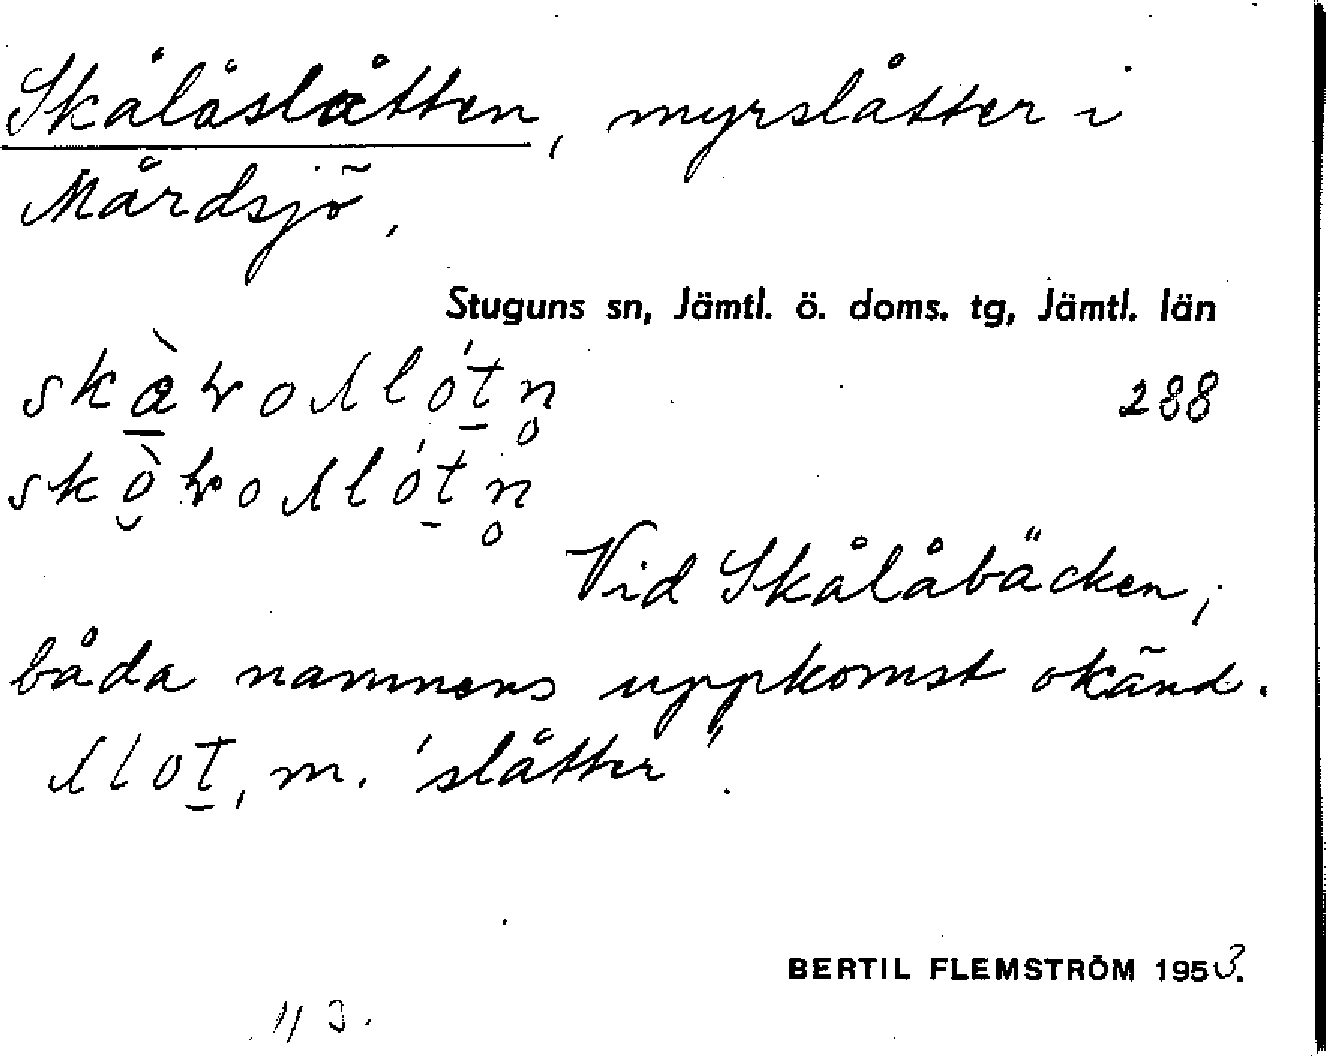 Skålåslåtten, myrslåtter i
Mårdsjö,
Stuguns sn, Jämtl. ö. doms. tg, Jämtl. län
288
Vid Skålåbäcken,
båda namnens uppkomst okänd.
slot, m. 'slåtter'.
BERTIL FLEMSTRÖM 1953.
113.